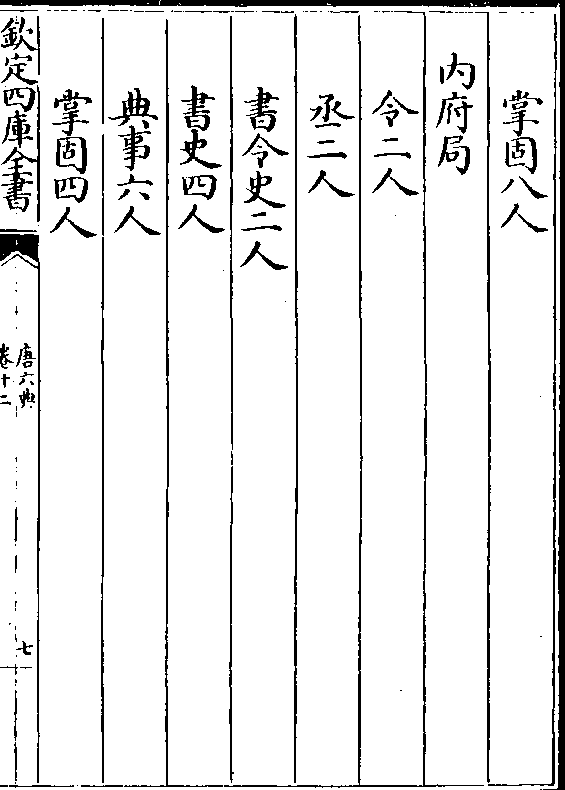 掌固八人
內府局
令二人
丞二人
書令史二人
書史四人
典事六人
掌固四人
欽定四庫全書
唐六典
卷十二
七